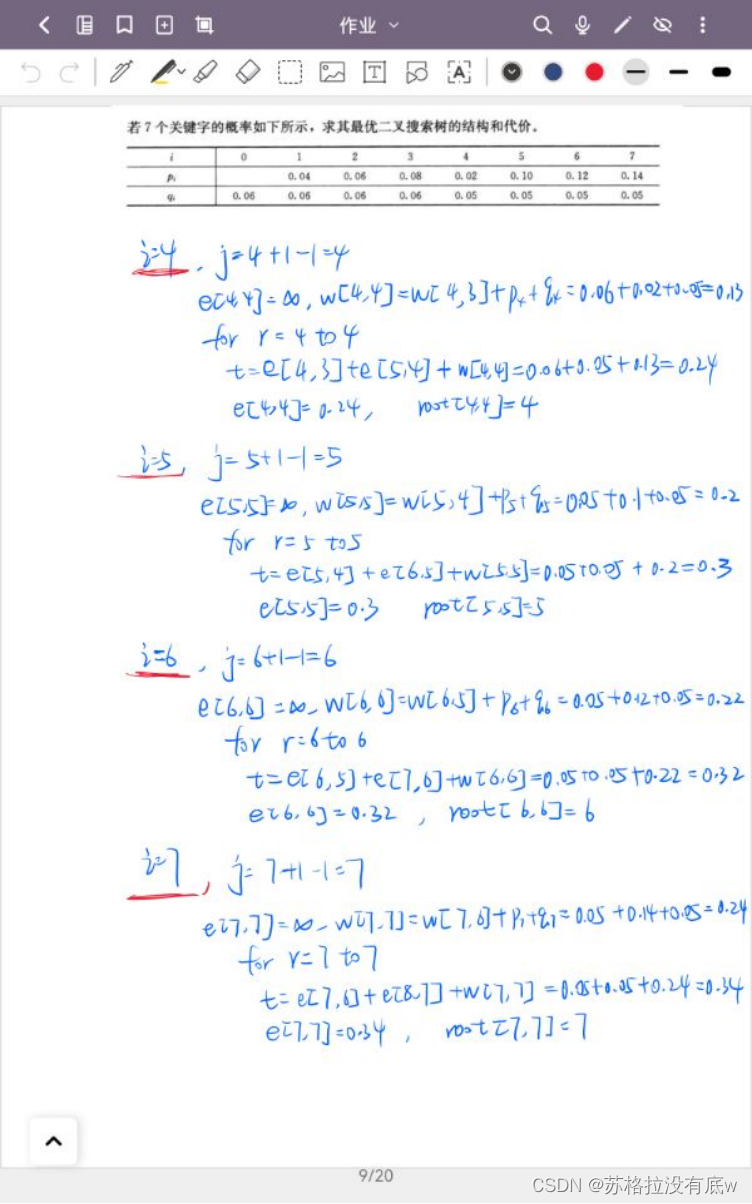 作业
若7个关键字的概率如下所示，求其最优二叉搜索树的结构和代价。
i 0 1 2 3 4 5 6 7
pᵢ 0.04 0.06 0.08 0.02 0.10 0.12 0.14
qᵢ 0.06 0.06 0.06 0.06 0.05 0.05 0.05 0.05
i=4, j=4+1-1=4
e[4,4]=∞, w[4,4]=w[4,3]+p₄+q₄=0.06+0.02+0.05=0.13
for r=4 to 4
t=e[4,3]+e[5,4]+w[4,4]=0.06+0.05+0.13=0.24
e[4,4]=0.24, root[4,4]=4
i=5, j=5+1-1=5
e[5,5]=∞, w[5,5]=w[5,4]+p₅+q₅=0.05+0.1+0.05=0.2
for r=5 to 5
t=e[5,4]+e[6,5]+w[5,5]=0.05+0.05+0.2=0.3
e[5,5]=0.3 root[5,5]=5
i=6, j=6+1-1=6
e[6,6]=∞, w[6,6]=w[6,5]+p₆+q₆=0.05+0.12+0.05=0.22
for r=6 to 6
t=e[6,5]+e[7,6]+w[6,6]=0.05+0.05+0.22=0.32
e[6,6]=0.32, root[6,6]=6
i=7, j=7+1-1=7
e[7,7]=∞, w[7,7]=w[7,6]+p₇+q₇=0.05+0.14+0.05=0.24
for r=7 to 7
t=e[7,6]+e[8,7]+w[7,7]=0.05+0.05+0.24=0.34
e[7,7]=0.34, root[7,7]=7
9/20
CSDN @苏格拉没有底w